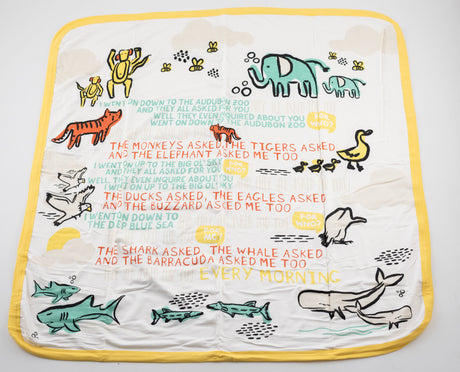 I WENT ON DOWN TO THE AUDUBON ZOO
AND THEY ALL ASKED FOR YOU
WELL THEY EVEN INQUIRED ABOUT YOU
WENT ON DOWN TO THE AUDUBON ZOO
FOR WHO?
THE MONKEYS ASKED, THE TIGERS ASKED
AND THE ELEPHANT ASKED ME TOO
I WENT ON UP TO THE BIG OL' SKY
AND THEY ALL ASKED FOR YOU
FOR WHO?
WELL THEY EVEN INQUIRE ABOUT YOU
I WENT ON UP TO THE BIG OL' SKY
THE DUCKS ASKED, THE EAGLES ASKED
AND THE BUZZARD ASKED ME TOO
I WENT ON DOWN TO
THE DEEP BLUE SEA
FOR WHO?
FOR WHO?
THE SHARK ASKED, THE WHALE ASKED
AND THE BARRACUDA ASKED ME TOO
EVERY MORNING